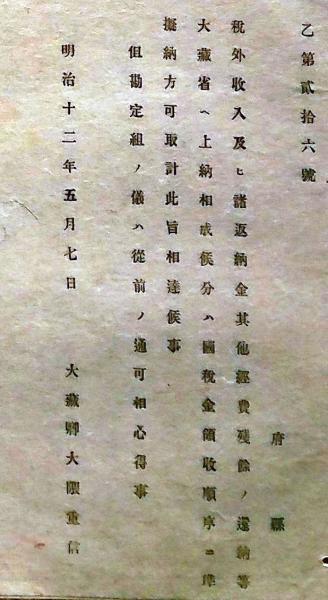 乙第貳拾六號
府縣
稅外收入及ヒ諸返納金其他經費殘餘ノ還納等
大藏省ヘ上納相成候分ハ國稅金領收順序ニ準
擬納方可取計此旨相達候事
但勘定組ノ儀ハ從前ノ通可相心得事
明治十二年五月七日 大藏卿大隈重信